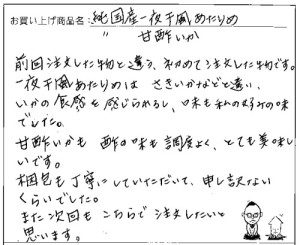 お買い上げ商品名:純国産一夜干風あたりめ
〃 甘酢いか
前回注文した物と違う、初めて注文した物です。
一夜干風あたりめは さきいかなどと違い、
いかの食感を感じられるし、味も私の好みの味
でした。
甘酢いかも 酢の味も調度よく、とても美味し
いです。
梱包も丁寧にしていただいて、申し訳ない
くらいでした。
また次回も こちらで注文したいと
思います。